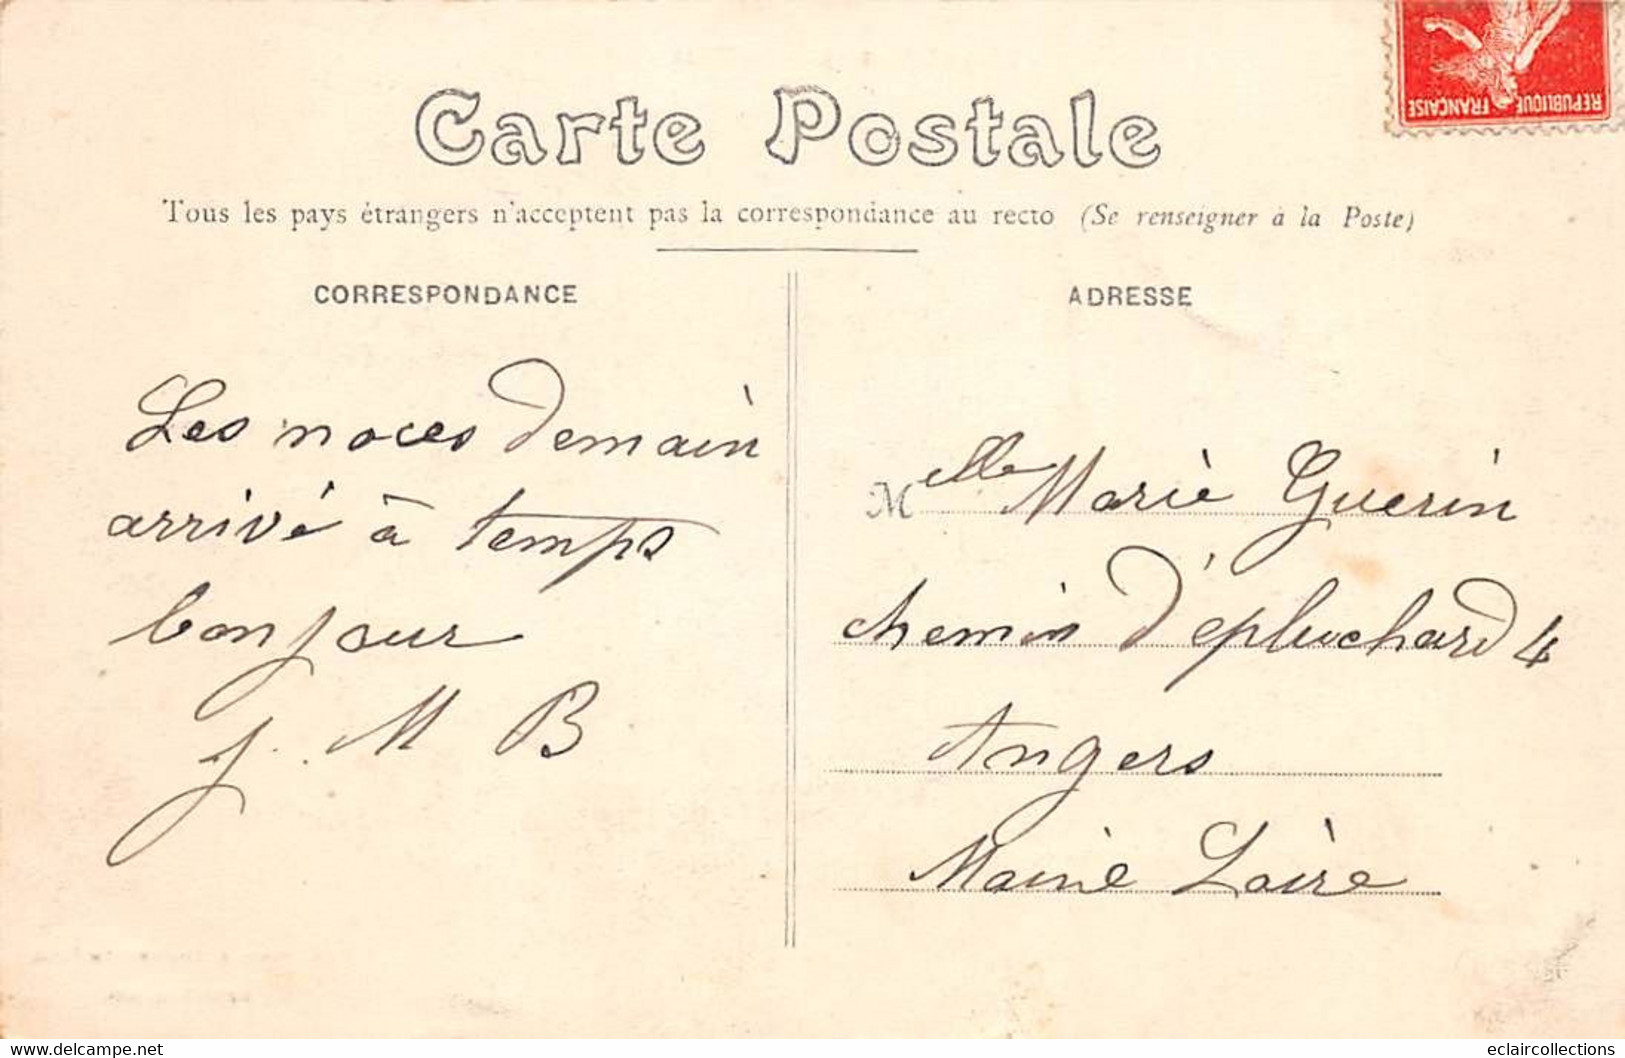 REPUBLIQUE FRANÇAISE
Carte Postale
Tous les pays étrangers n'acceptent pas la correspondance au recto (Se renseigner à la Poste)
CORRESPONDANCE
Les noces demain
arrivé à temps
bonjour
J. M B
ADRESSE
Melle Marie Guerin
chemin d'épluchard 4
Angers
Maine Loire
delcampe.net
eclaircollections